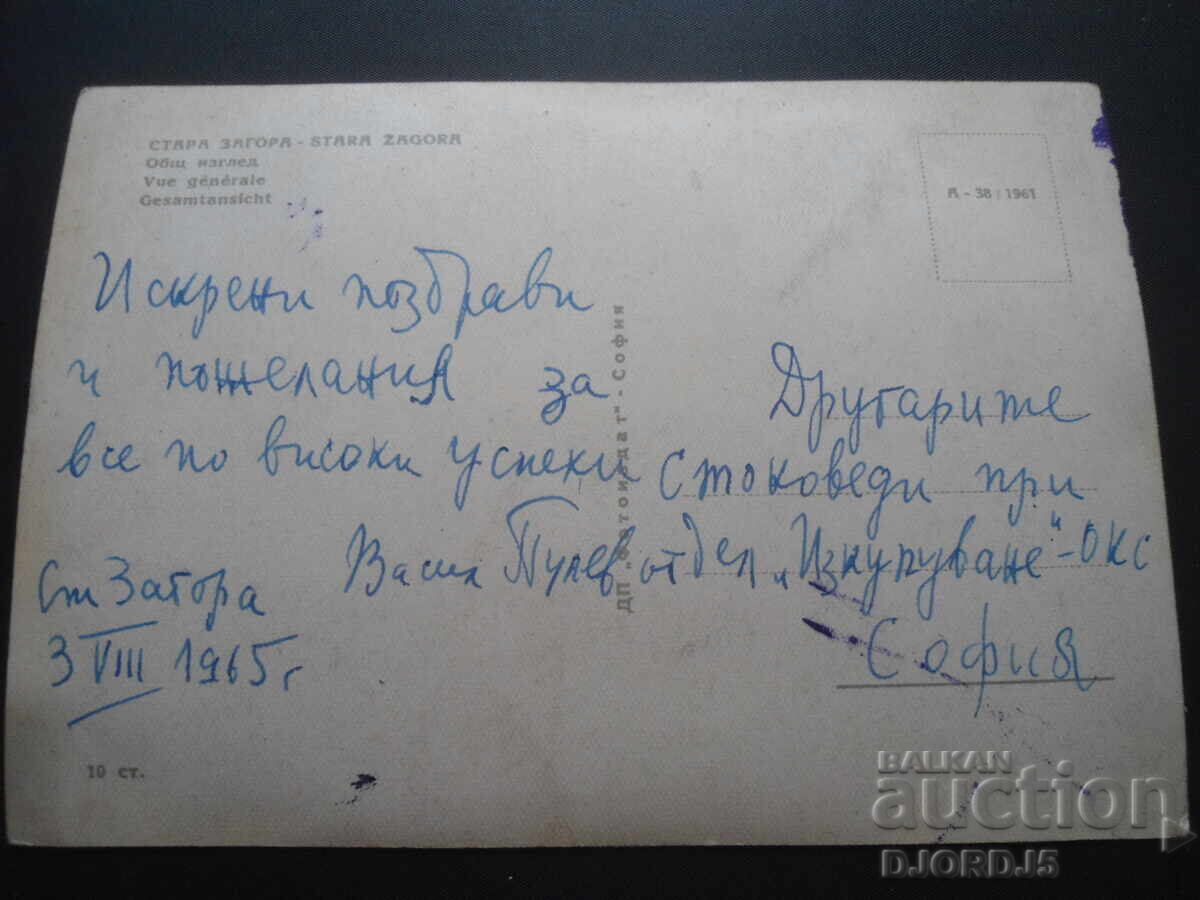 СТАРА ЗАГОРА - STARA ZAGORA
Общ изглед
Vue générale
Gesamtansicht
A - 38 / 1961
Искрени поздрави
и пожелания за
все по високи успехи
Васил Пулев
Ст Загора
3 VIII 1965 г
10 ст.
ДП „Фотоиздат" - София
Другарите
Стоковеди при
отдел „Изкупуване" - ОКС
София
BALKAN
auction
DJORDJ5